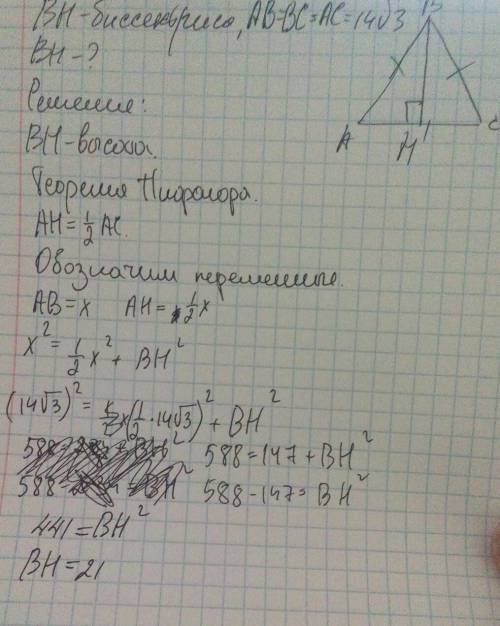 BH-биссектриса, AB=BC=AC=14√3
BH-?
Решение:
BH-высота.
Теорема Пифагора.
AH=½AC.
Обозначим переменные.
AB=x AH=½x
x²=½x²+BH²
(14√3)²=(½·14√3)²+BH²
588=147+BH²
588-147=BH²
441=BH²
BH=21
B
A
H
C